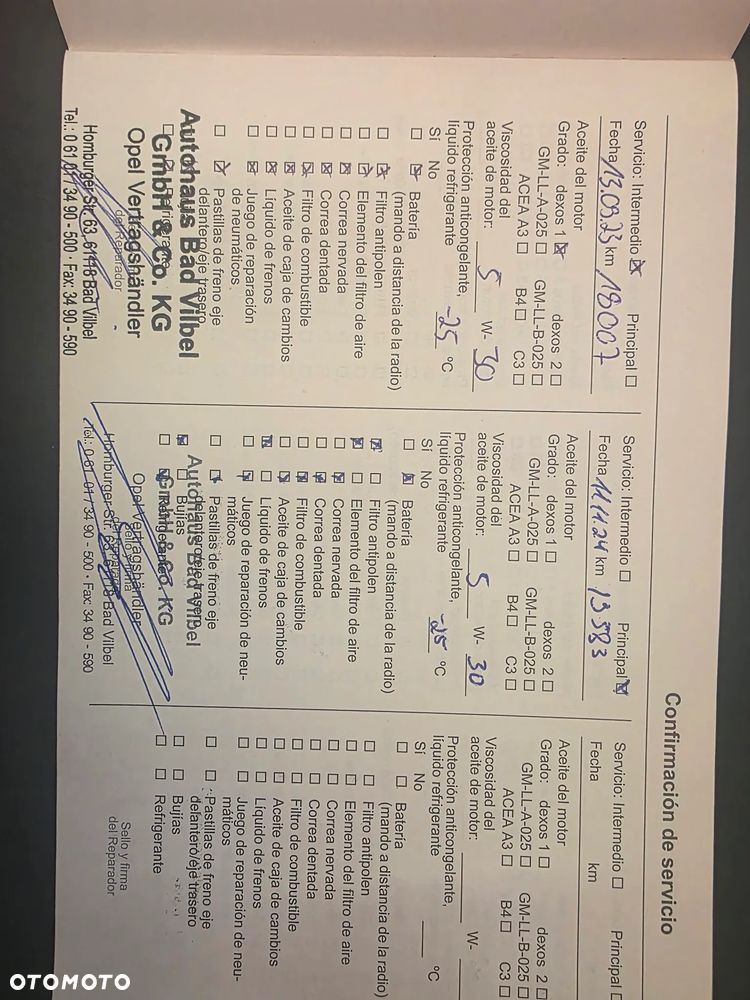 Confirmación de servicio
Servicio: Intermedio ☒ Principal ☐
Fecha 13.09.23 km 18007
Aceite del motor
Grado: dexos 1 ☒ dexos 2 ☐
GM-LL-A-025 ☐ GM-LL-B-025 ☐
ACEA A3 ☐ B4 ☐ C3 ☐
Viscosidad del
aceite de motor: 5 W- 30
Protección anticongelante,
líquido refrigerante -25 °C
Sí No
☐ ☒ Batería
(mando a distancia de la radio)
☐ ☒ Filtro antipolen
☐ ☒ Elemento del filtro de aire
☐ ☒ Correa nervada
☐ ☒ Correa dentada
☐ ☒ Filtro de combustible
☐ ☒ Aceite de caja de cambios
☐ ☒ Líquido de frenos
☐ ☒ Juego de reparación
de neumáticos.
☐ ☒ Pastillas de freno eje
delantero/eje trasero
Autohaus Bad Vilbel
GmbH & Co. KG
Opel Vertragshändler
del Reparador
Homburger Str. 63, 61118 Bad Vilbel
Tel.: 0 61 01 / 34 90 - 500 · Fax: 34 90 - 590
Servicio: Intermedio ☐ Principal ☒
Fecha 11.11.24 km 13583
Aceite del motor
Grado: dexos 1 ☐ dexos 2 ☐
GM-LL-A-025 ☐ GM-LL-B-025 ☐
ACEA A3 ☐ B4 ☐ C3 ☐
Viscosidad del
aceite de motor: 5 W- 30
Protección anticongelante,
líquido refrigerante -25 °C
Sí No
☐ ☒ Batería
(mando a distancia de la radio)
☒ ☐ Filtro antipolen
☒ ☐ Elemento del filtro de aire
☐ ☒ Correa nervada
☐ ☒ Correa dentada
☐ ☒ Filtro de combustible
☐ ☒ Aceite de caja de cambios
☒ ☐ Líquido de frenos
☐ ☒ Juego de reparación de neu-
máticos
☐ ☒ Pastillas de freno eje
delantero/eje trasero
☒ ☐ Bujías
Autohaus Bad Vilbel
GmbH & Co. KG
Opel Vertragshändler
Homburger Str. 63, 61118 Bad Vilbel
Tel.: 0 61 01 / 34 90 - 500 · Fax: 34 90 - 590
Servicio: Intermedio ☐ Principal ☐
Fecha km
Aceite del motor
Grado: dexos 1 ☐ dexos 2 ☐
GM-LL-A-025 ☐ GM-LL-B-025 ☐
ACEA A3 ☐ B4 ☐ C3 ☐
Viscosidad del
aceite de motor: W-
Protección anticongelante,
líquido refrigerante °C
Sí No
☐ ☐ Batería
(mando a distancia de la radio)
☐ ☐ Filtro antipolen
☐ ☐ Elemento del filtro de aire
☐ ☐ Correa nervada
☐ ☐ Correa dentada
☐ ☐ Filtro de combustible
☐ ☐ Aceite de caja de cambios
☐ ☐ Líquido de frenos
☐ ☐ Juego de reparación de neu-
máticos
☐ ☐ Pastillas de freno eje
delantero/eje trasero
☐ ☐ Bujías
☐ ☐ Refrigerante
Sello y firma
del Reparador
OTOMOTO